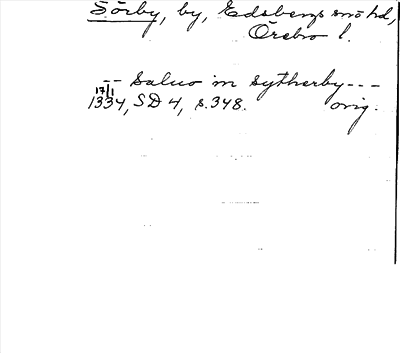 Sörby, by, Edsbergs snö hd,
Örebro l.
-- Saluo in sytherby ---
17/1
1334, SD 4, s. 348. orig.